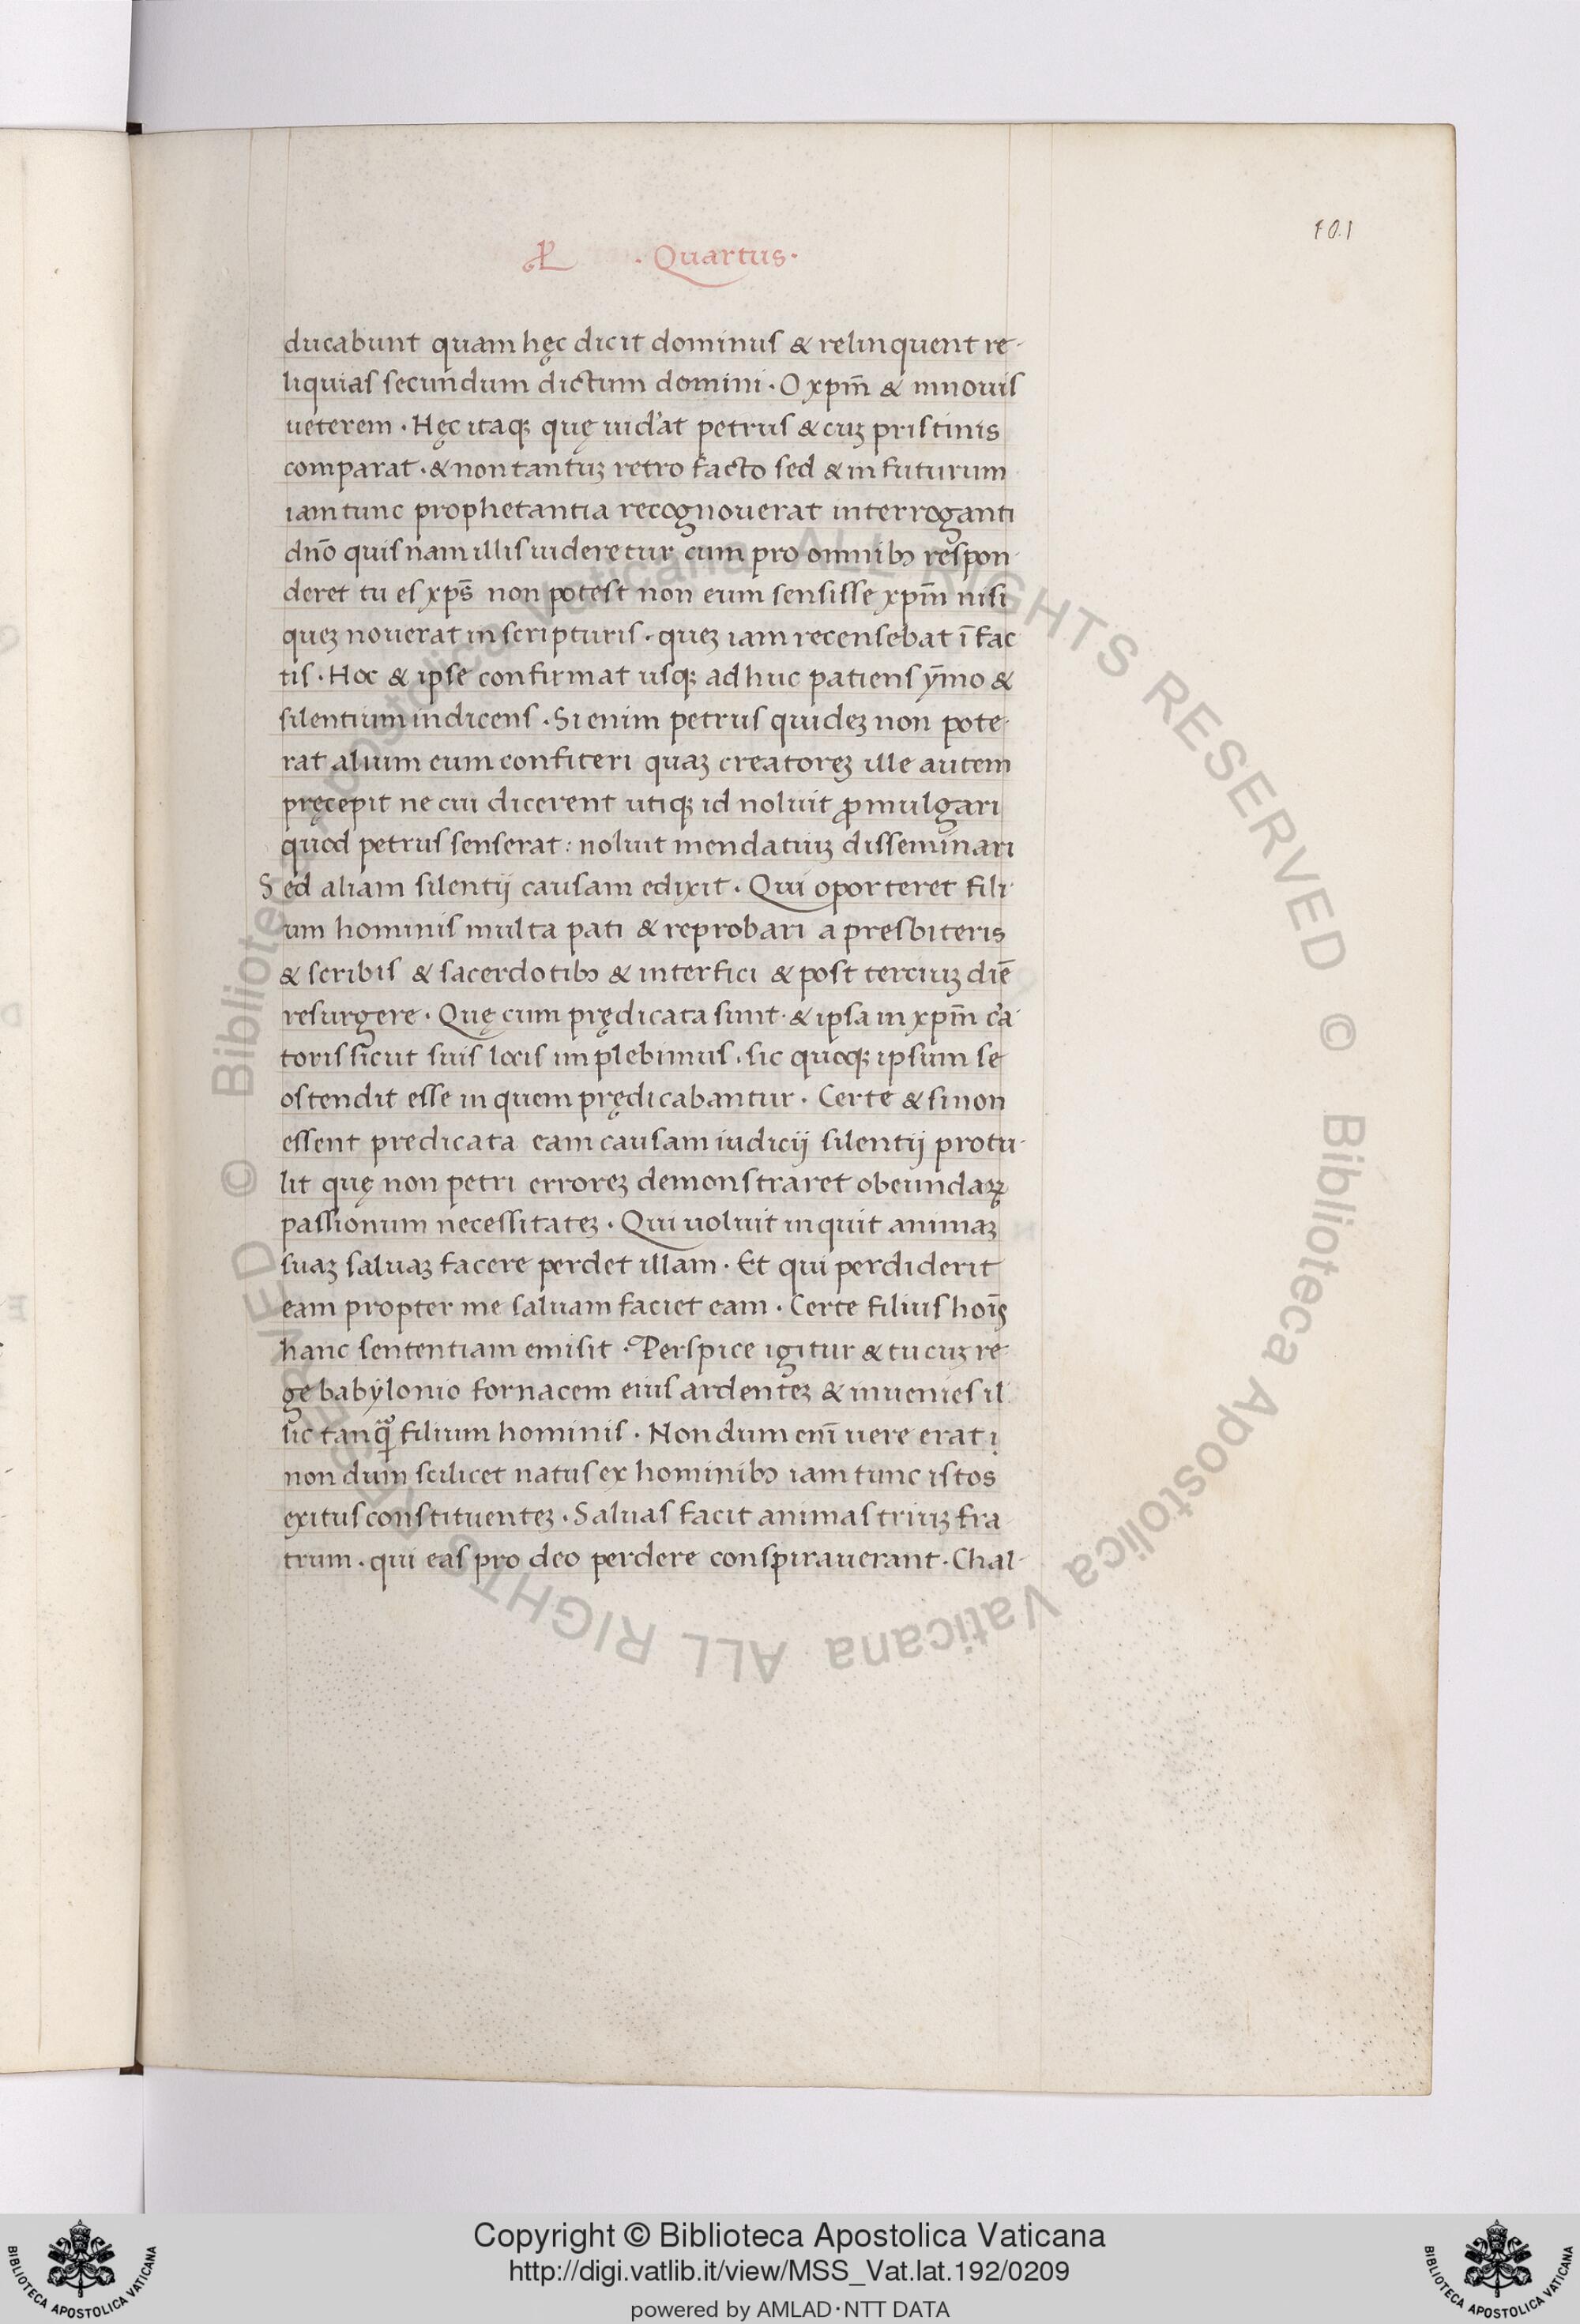 101
· Quartus ·
ducabunt quam hęc dicit dominus & relinquent re-
liquias secundum dictum domini · O xp̄m & innouis
ueterem · Hęc itaqꝫ quę uid'at petrus & cuꝫ pristinis
comparat · & non tantuꝫ retro facto sed & in futurum
iam tunc prophetantia recognouerat interroganti
dn̄o quis nam illis uideretur cum pro omnibꝫ respon-
deret tu es xp̄s non potest non eum sensisse xp̄m nisi
queꝫ nouerat in scripturis · queꝫ iam recensebat ī fac
tis · Hoc & ipse confirmat usqꝫ ad huc patiens ȳmo &
silentium indicens · Si enim petrus quideꝫ non pote-
rat alium eum confiteri quaꝫ creatoreꝫ ille autem
pręcepit ne cui dicerent utiqꝫ id noluit ꝓmulgari
quod petrus senserat : noluit mendatiuꝫ disseminari
Sed aliam silentij causam edixit · Qui oporteret fili-
um hominis multa pati & reprobari a presbiteris
& scribis & sacerdotibꝫ & interfici & post terciuꝫ diē
resurgere · Quę cum prędicata sunt · & ipsa in xp̄m c'a-
toris sicut suis locis implebimus · sic quoqꝫ ipsum se
ostendit esse in quem prędicabantur · Certe & si non
essent predicata eam causam iudicij silentij protu-
lit quę non petri erroreꝫ demonstraret obeundaꝝ
passionum necessitateꝫ · Qui uoluit inquit animaꝫ
suaꝫ saluaꝫ facere perdet illam · Et qui perdiderit
eam propter me saluam faciet eam · Certe filius hoīs
hanc sententiam emisit · Perspice igitur & tu cuꝫ re-
ge babylonio fornacem eius ardenteꝫ & inuenies il-
lic tanqͣꝫ filium hominis · Nondum enī uere erat ı
non dum scilicet natus ex hominibꝫ iam tunc istos
exitus constituenteꝫ · Saluas facit animas triuꝫ fra
trum · qui eas pro deo perdere conspirauerant · Chal-
Copyright © Biblioteca Apostolica Vaticana
http://digi.vatlib.it/view/MSS_Vat.lat.192/0209
powered by AMLAD·NTT DATA
BIBLIOTECA APOSTOLICA VATICANA
BIBLIOTECA APOSTOLICA VATICANA
© Biblioteca Apostolica Vaticana ALL RIGHTS RESERVED © Biblioteca Apostolica Vaticana ALL RIGHTS RESERVED